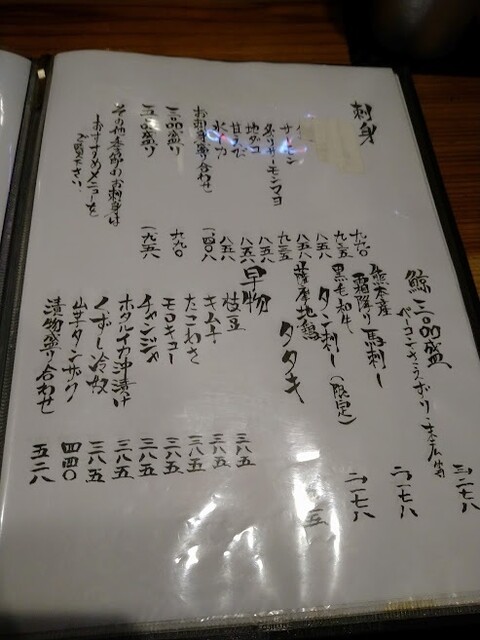 刺身
サーモン
炙りサーモンマヨ
地ダコ
甘エビ
水イカ
お刺身盛り合わせ
三品盛り
五品盛り
その他季節のお刺身は
おすすめメニューを
ご覧下さい
九九〇
九三五
八五八
八五八
九三五
八五八
八五八
一四〇八
九九〇
一九五八
鯨三品盛
ベーコン・さえずり・末広等
三二七八
熊本産
霜降り馬刺し
二一七八
黒毛和牛
タン刺し(限定)
二一七八
薩摩地鶏
タタキ
早物
枝豆
三八五
キムチ
三八五
たこわさ
三八五
モロキュー
三八五
チャンジャ
三八五
ホタルイカ沖漬け
三八五
くずし冷奴
三八五
山芋タンザク
四四〇
漬物盛り合わせ
五二八